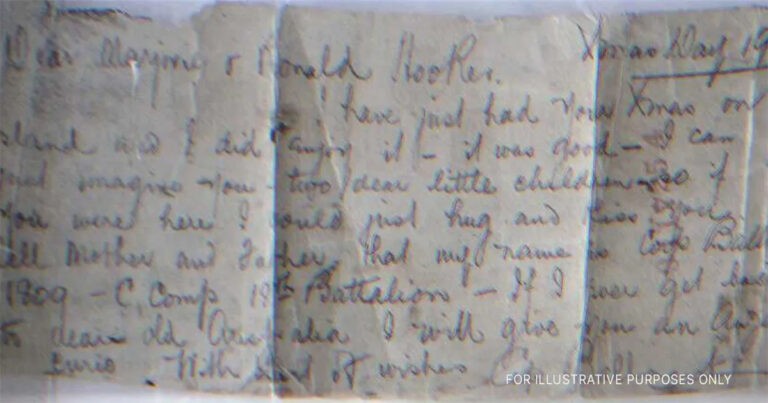 Dear Marjorie & Ronald Hooker. Xmas Day 19
I have just had your Xmas on
sland and I did enjoy it - it was good - I can
just imagine you two dear little children so if
you were here I would just hug and kiss you
ell Mother and Father that my name is Corp Ball
1809 - C. Comp 18th Battalion - If I ever get back
to dear old Australia I will give you an
curio With best of wishes
FOR ILLUSTRATIVE PURPOSES ONLY